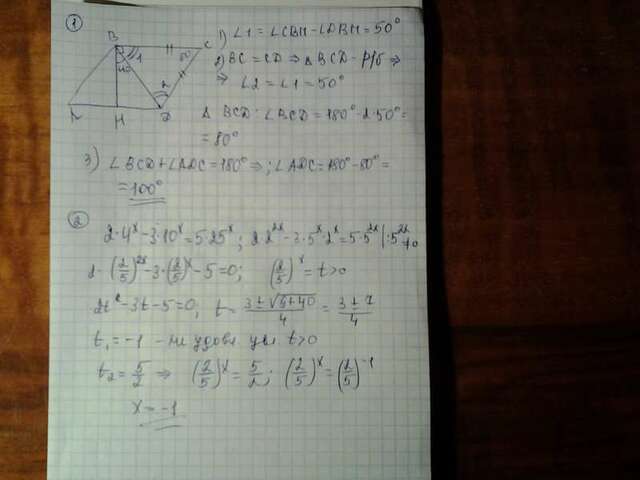 ①
B C
1
40°
2
A H D
1) ∠1 = ∠CBH - ∠DBH = 50°
2) BC = CD ⇒ ΔBCD - р/б ⇒
⇒ ∠2 = ∠1 = 50°
Δ BCD: ∠BCD = 180° - 2·50° =
= 80°
3) ∠BCD + ∠ADC = 180° ⇒; ∠ADC = 180° - 80° =
= 100°
②
2·4ˣ - 3·10ˣ = 5·25ˣ; 2·2²ˣ - 3·5ˣ·2ˣ = 5·5²ˣ |:5²ˣ ≠0
2·(2/5)²ˣ - 3·(2/5)ˣ - 5 = 0; (2/5)ˣ = t > 0
2t² - 3t - 5 = 0; t = (3 ± √(9+40))/4 = (3 ± 7)/4
t₁ = -1 - не удовл усл t > 0
t₂ = 5/2 ⇒ (2/5)ˣ = 5/2; (2/5)ˣ = (2/5)⁻¹
x = -1